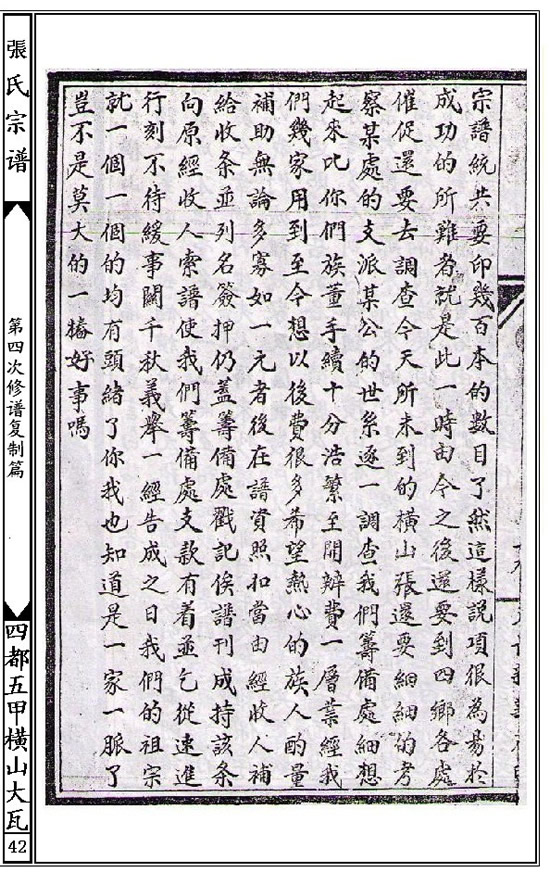 宗譜統共要印幾百本的數目了然這樣說項很為易於
成功的所難者就是此一時由今之後還要到四鄉各處
催促還要去調查今天所未到的橫山張還要細細的考
察某處的支派某公的世系逐一調查我們籌備處細想
起來比你們族董手續十分浩繁至開辦費一層業經我
們幾家用到至今想以後費很多希望熱心的族人酌量
補助無論多寡如一元者後在譜資照扣當由經收人補
給收条並列名簽押仍蓋籌備處戳記俟譜刊成持該条
向原經收人索譜使我們籌備處支款有着並乞從速進
行刻不待緩事關千秋義舉一經告成之日我們的祖宗
就一個一個的均有頭緒了你我也知道是一家一脈了
豈不是莫大的一樁好事嗎
張氏宗谱
第四次修谱复制篇
四都五甲横山大瓦
42